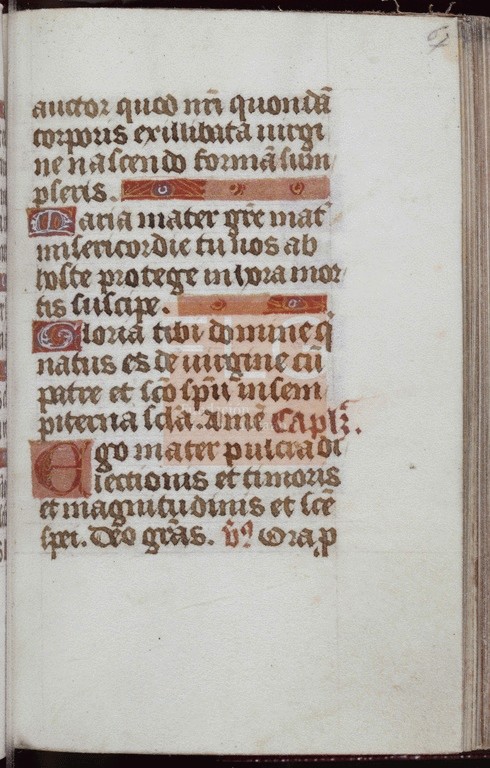 auctor quod nr̄i quondā
corporis ex illibata uirgi
ne nascendo formā sum
pseris.
Maria mater grē mat̾
misericordie tu nos ab
hoste protege in hora mor
tis suscipe.
Gloria tibi domine q̄
natus es de uirgine cū
patre et sc̄o sp̄u in sem
piterna scl̄a. Amē Capl̄.
Ego mater pulcra di
lectionis et timoris
et magnitudinis et sc̄e
spei. Deo grās. v̄º Ora ꝓ